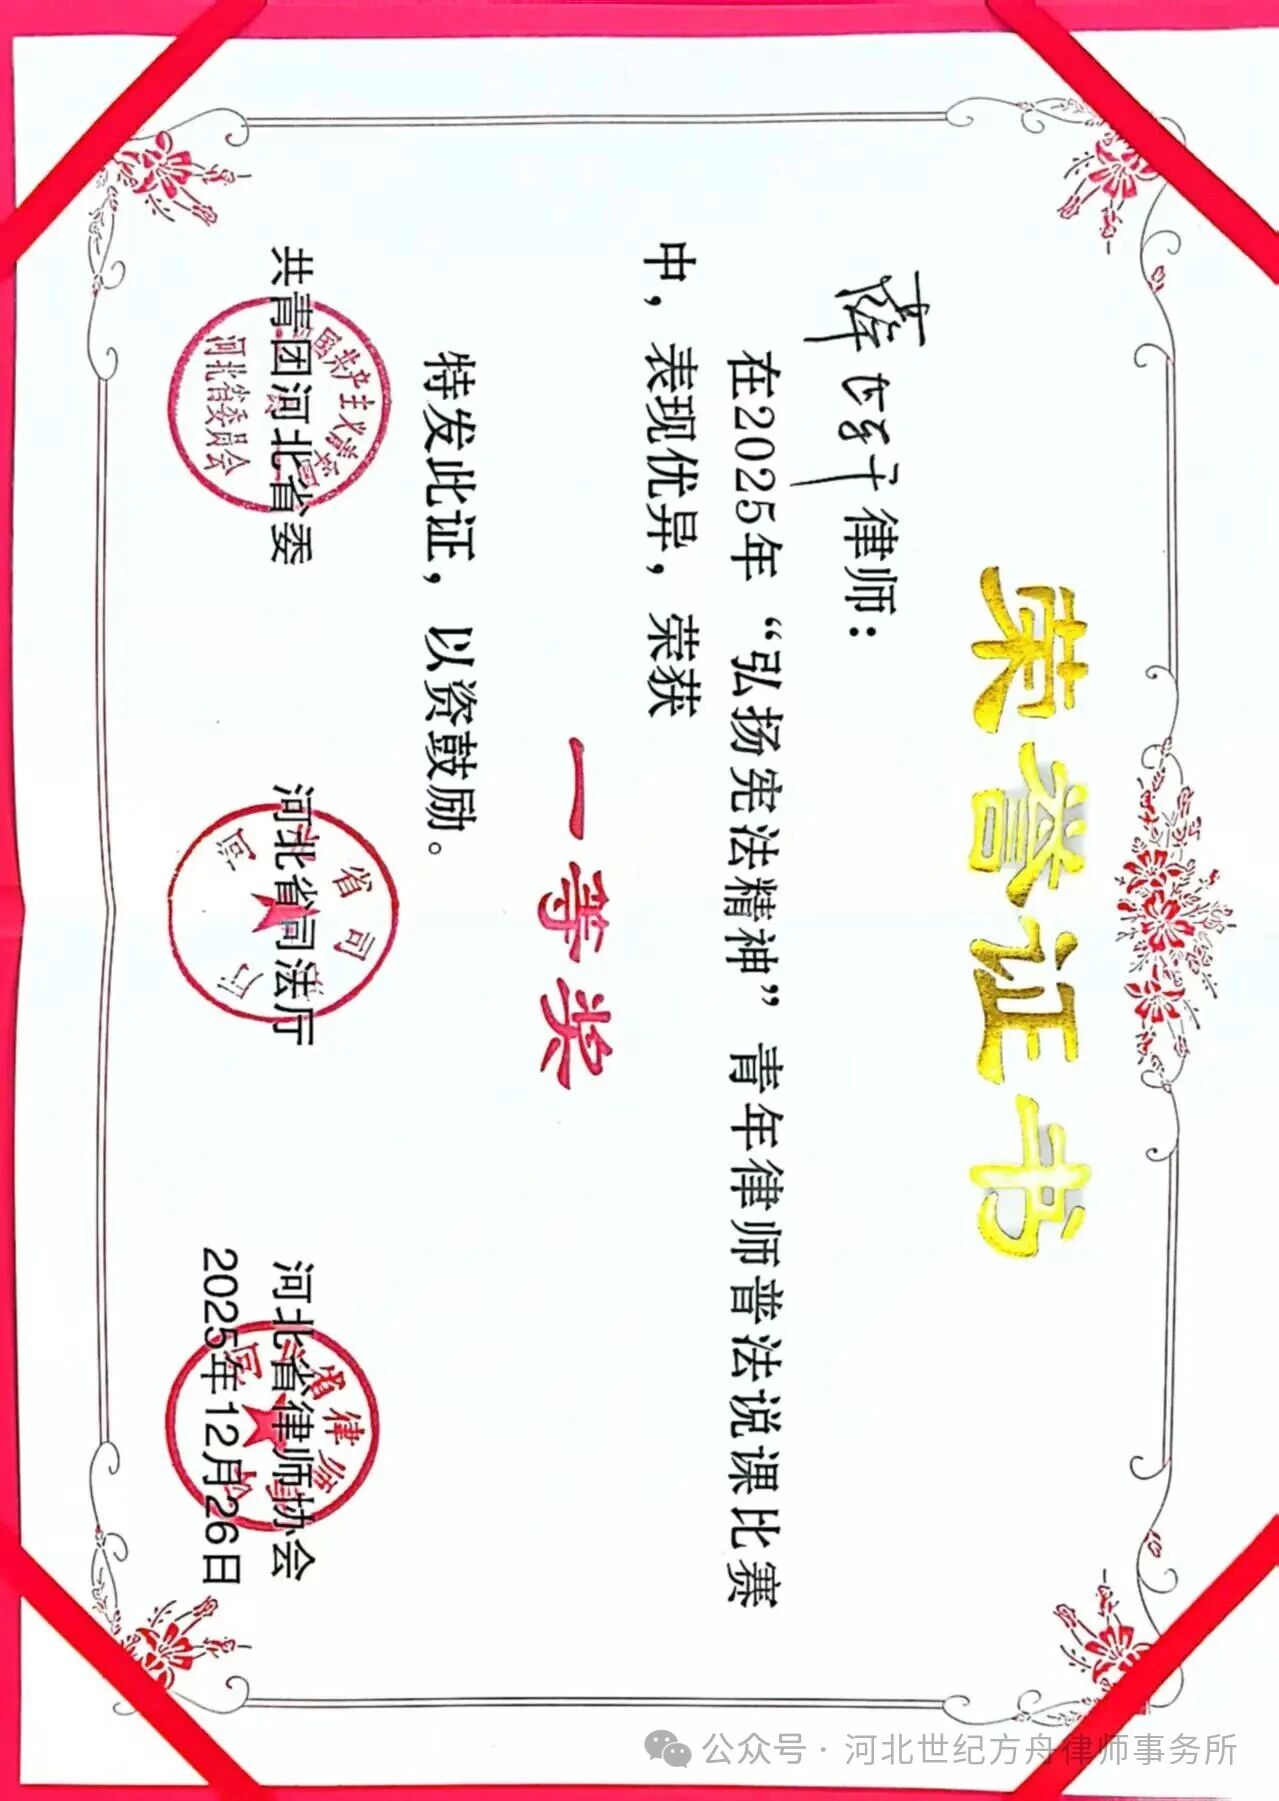 荣誉证书
薛 律师：
在2025年“弘扬宪法精神”青年律师普法说课比赛
中，表现优异，荣获
一等奖
特发此证，以资鼓励。
共青团河北省委 河北省司法厅 河北省律师协会
2025年12月26日
河北省委员会
公众号·河北世纪方舟律师事务所